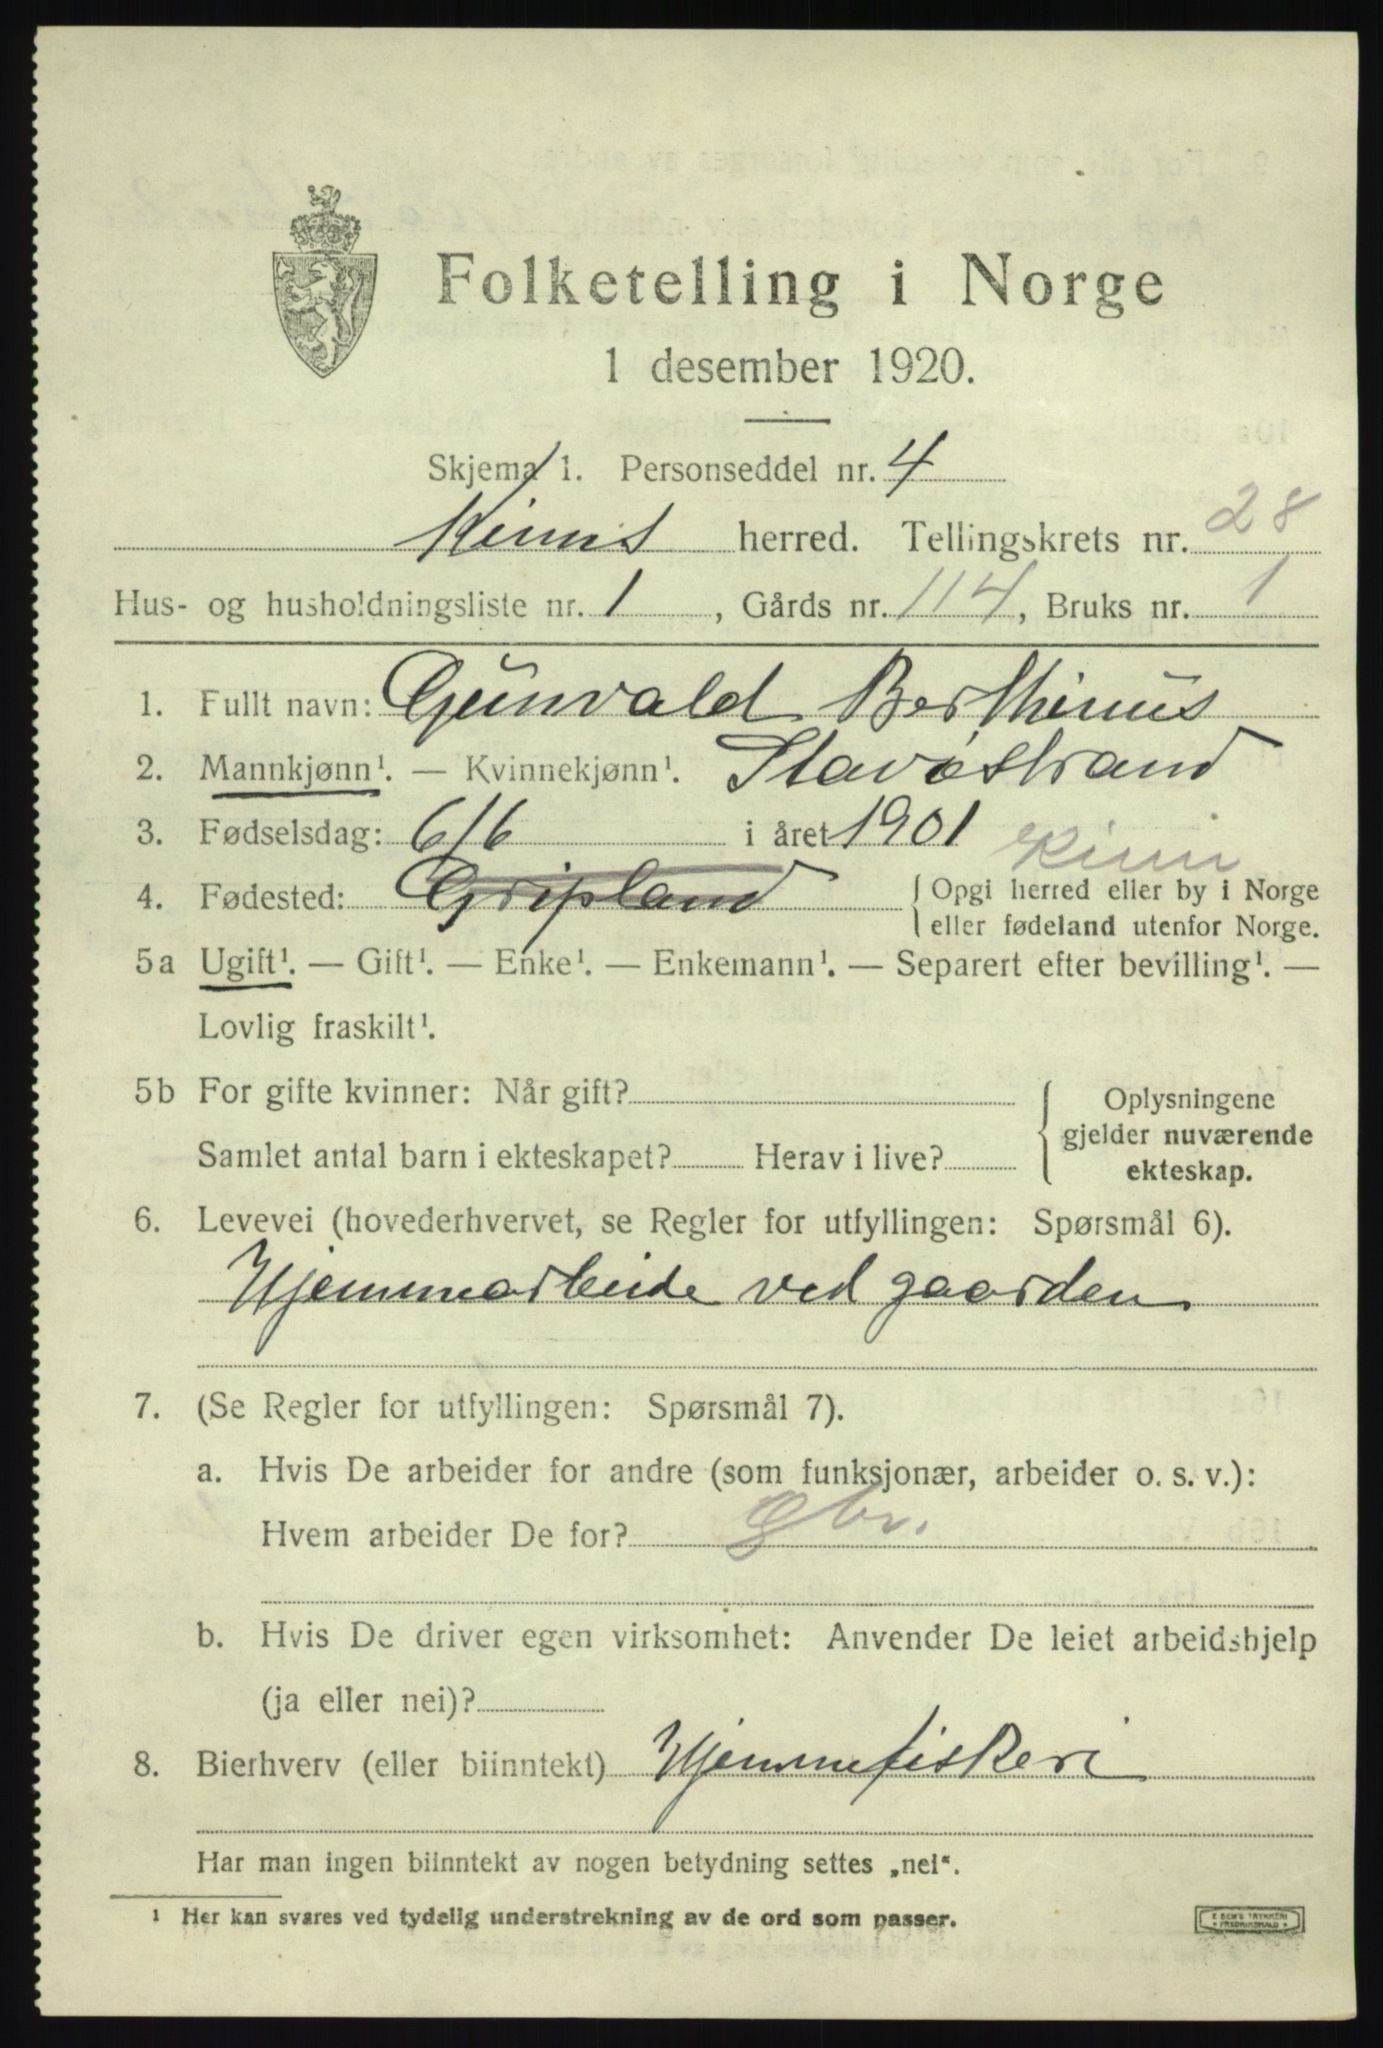 Folketelling i Norge
1 desember 1920.
Skjema 1. Personseddel nr. 4
Kinns herred. Tellingskrets nr. 28
Hus- og husholdningsliste nr. 1, Gårds nr. 114, Bruks nr. 1
1. Fullt navn: Gunvald Berthinus
2. Mannkjønn¹. — Kvinnekjønn¹. Stavøstrand
3. Fødselsdag: 6/6 i året 1901
Kinn
4. Fødested: Gripland { Opgi herred eller by i Norge
eller fødeland utenfor Norge.
5a Ugift¹. — Gift¹. — Enke¹. — Enkemann¹. — Separert efter bevilling¹. —
Lovlig fraskilt¹.
5b For gifte kvinner: Når gift?
Samlet antal barn i ekteskapet? Herav i live?
{ Oplysningene
gjelder nuværende
ekteskap.
6. Levevei (hovederhvervet, se Regler for utfyllingen: Spørsmål 6).
Hjemmarbeide ved gaarden
7. (Se Regler for utfyllingen: Spørsmål 7).
a. Hvis De arbeider for andre (som funksjonær, arbeider o. s. v.):
Hvem arbeider De for? Gbr.
b. Hvis De driver egen virksomhet: Anvender De leiet arbeidshjelp
(ja eller nei)?
8. Bierhverv (eller biinntekt) Hjemmefiskeri
Har man ingen biinntekt av nogen betydning settes „nei“.
¹ Her kan svares ved tydelig understrekning av de ord som passer.